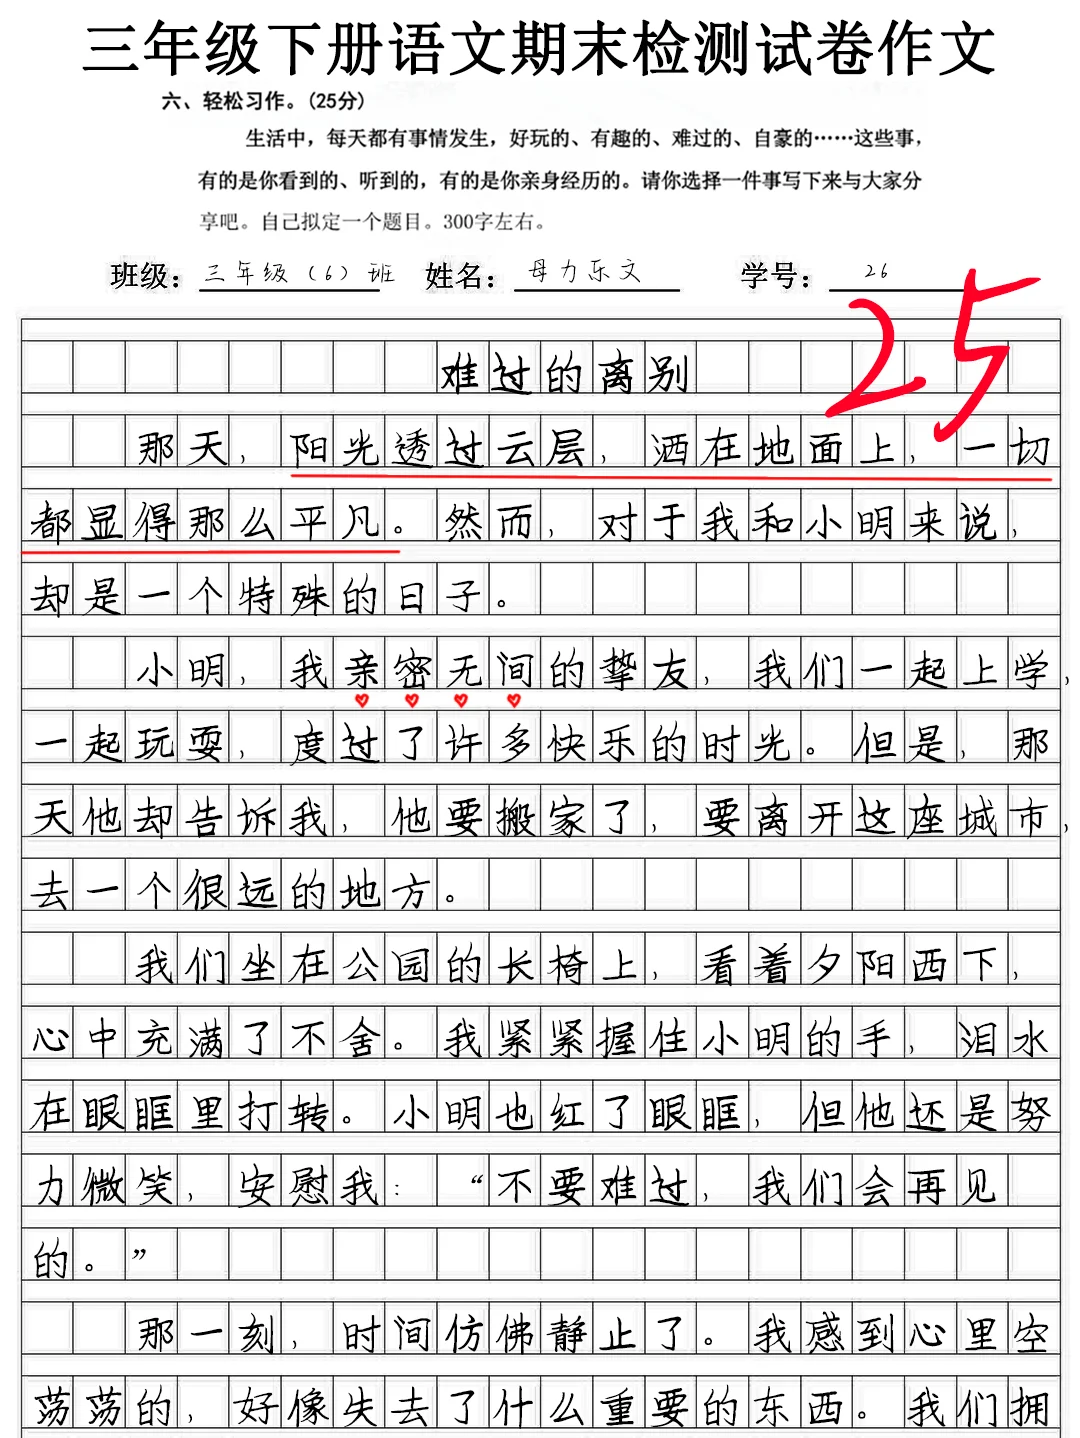 三年级下册语文期末检测试卷作文
六、轻松习作。(25分)
生活中，每天都有事情发生，好玩的、有趣的、难过的、自豪的……这些事，
有的是你看到的、听到的，有的是你亲身经历的。请你选择一件事写下来与大家分
享吧。自己拟定一个题目。300字左右。
班级：三年级（6）班 姓名：母力乐文 学号：26
25
难过的离别
那天，阳光透过云层，洒在地面上，一切
都显得那么平凡。然而，对于我和小明来说，
却是一个特殊的日子。
小明，我亲密无间的挚友，我们一起上学，
一起玩耍，度过了许多快乐的时光。但是，那
天他却告诉我，他要搬家了，要离开这座城市，
去一个很远的地方。
我们坐在公园的长椅上，看着夕阳西下，
心中充满了不舍。我紧紧握住小明的手，泪水
在眼眶里打转。小明也红了眼眶，但他还是努
力微笑，安慰我：“不要难过，我们会再见
的。”
那一刻，时间仿佛静止了。我感到心里空
荡荡的，好像失去了什么重要的东西。我们拥